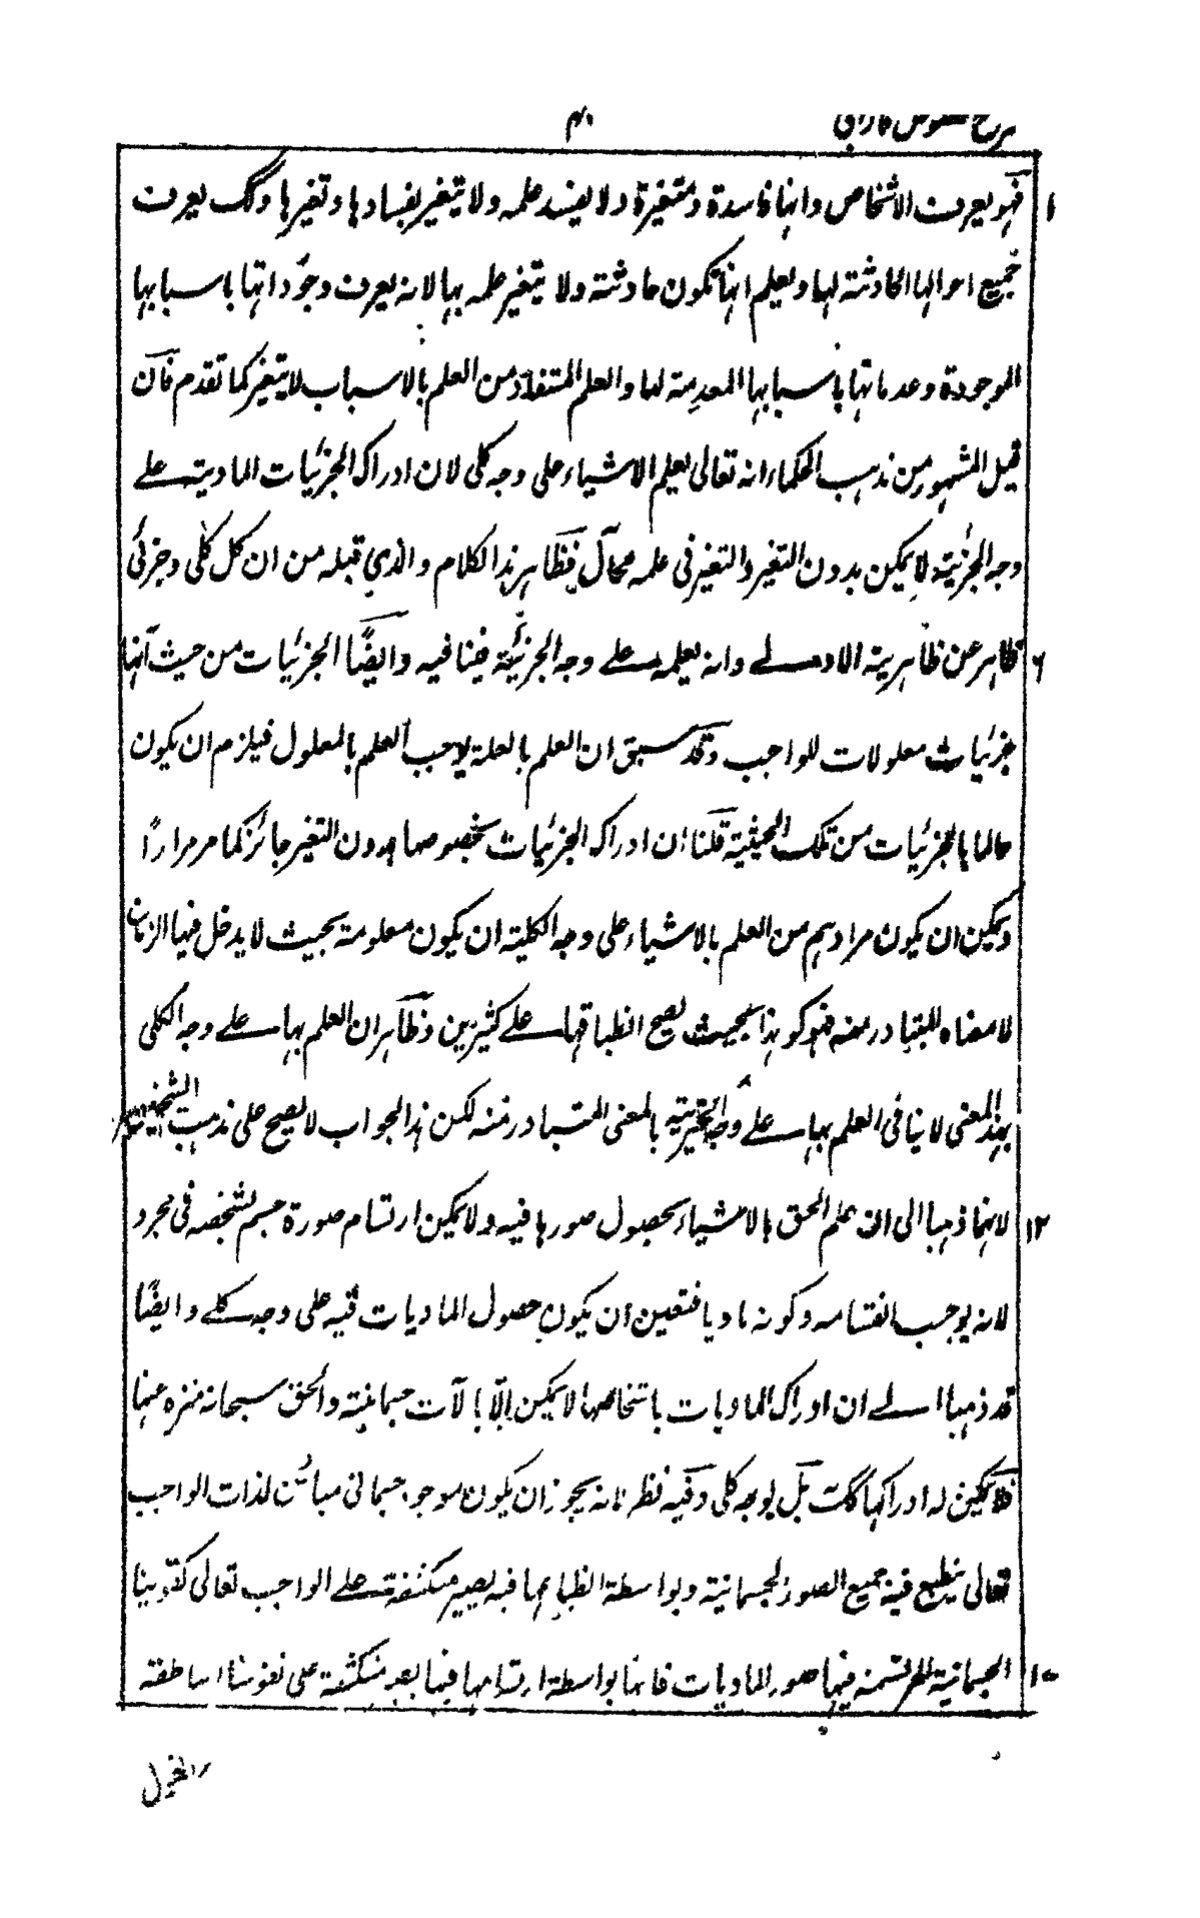 شرح فصوص فارابی ۴۰
۱ فهو یعرف الاشخاص وانها فاسدة ومتغیرة ولا یفسد علمه ولا یتغیر بفسادها وتغیرها وکک یعرف
جمیع احوالها الحادثة لها ویعلم انها تکون حادثة ولا یتغیر علمه بها لانه یعرف وجوداتها باسبابها
الموجودة وعدماتها باسبابها المعدمة لها والعلم المستفاد من العلم بالاسباب لا یتغیر کما تقدم فان
قیل المشهور من مذهب الحکماء انه تعالی یعلم الاشیاء علی وجه کلی لان ادراک الجزئیات المادیة علے
وجه الجزئیة لا یمکن بدون التغیر والتغیر فی علمه محال فظاهر هذا الکلام والذی قبله من ان کل کلی وجزئی
۶ ظاهر عن ظاهریة الاولے وانه یعلمه علے وجه الجزئیة ینافیه وایضًا الجزئیات من حیث انها
جزئیات معلولات للواجب وقد سبق ان العلم بالعلة یوجب العلم بالمعلول فیلزم ان یکون
عالما بالجزئیات من تلک الحیثیة قلنا ان ادراک الجزئیات بخصوصها بدون التغیر جائز کما مر مرارًا
ویمکن ان یکون مرادهم من العلم بالاشیاء علی وجه الکلیة ان یکون معلومة بحیث لا یدخل فیها الزمان
لا معناه المتبادر منه فهو کونها بحیث یصح انطباقها علے کثیرین وظاهر ان العلم بها علے وجه الکلی
بهذا المعنی لا ینافی العلم بها علے وجه الجزئیة بالمعنی المتبادر منه لکن هذا الجواب لا یصح علی مذهب الشیخین
۱۲ لانهما ذهبا الی ان علم الحق بالاشیاء بحصول صورها فیه ولا یمکن ارتسام صورة جسم بشخصه فی مجرد
لانه یوجب انقسامه وکونه مادیا فتعین ان یکون حصول المادیات فیه علی وجه کلے وایضًا
قد ذهبا الے ان ادراک المادیات باشخاصها لا یمکن الّا بالآت جسمانیة والحق سبحانه منزه عنها
فلا یمکن له ادراکها کک بل بوجه کلی وفیه نظر لانه یجوز ان یکون موجود جسمانی مبائن لذات الواجب
تعالی ینطبع فیه جمیع الصور الجسمانیة وبواسطة انطباعها فیه یصیر منکشفة علے الواجب تعالی کقوینا
۱۷ الجسمانیة المرتسمة فیها صور المادیات فانها بواسطة ارتسامها فیها یصیر منکشفة علی نفوسنا الناطقة